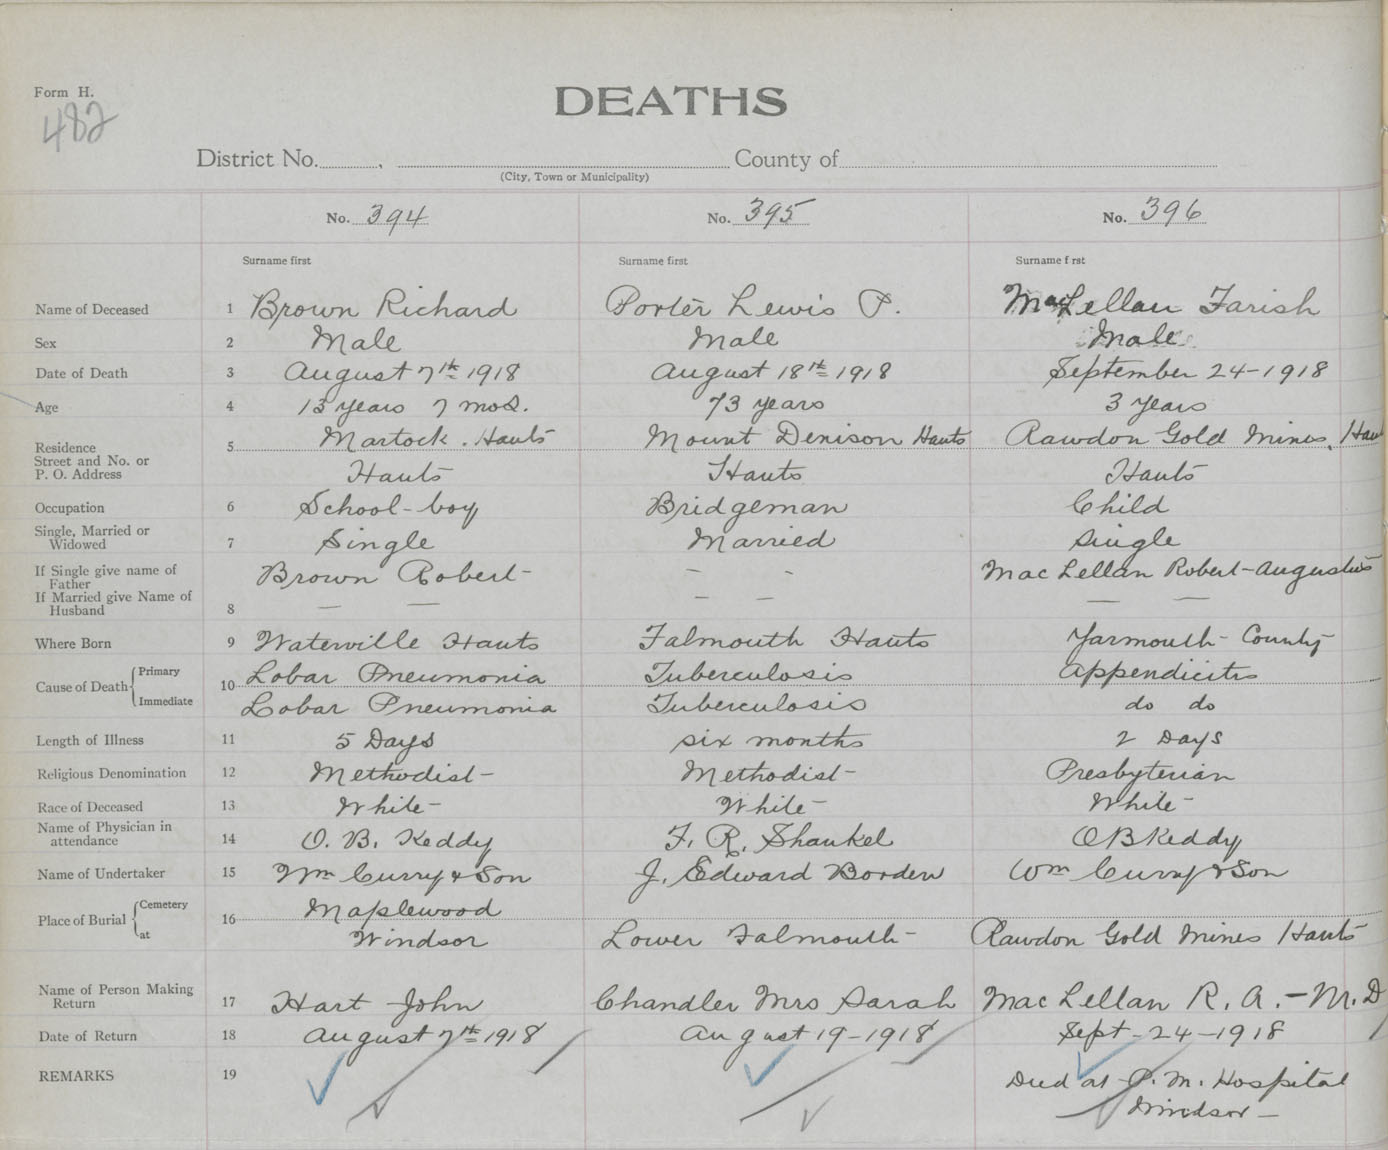 Form H.
482
DEATHS
District No. , County of
(City, Town or Municipality)
No. 394 No. 395 No. 396
Surname first Surname first Surname f rst
Name of Deceased 1 Brown Richard Porter Lewis P. MacLellan Farish
Sex 2 Male Male Male
Date of Death 3 August 7th 1918 August 18th 1918 September 24-1918
Age 4 13 years 7 mos. 73 years 3 years
Residence
Street and No. or
P. O. Address
5 Martock. Hants Mount Denison Hants Rawdon Gold Mines, Han
Hants Hants Hants
Occupation 6 School-boy Bridgeman Child
Single, Married or
Widowed
7 Single Married Single
If Single give name of
Father
Brown Robert - - MacLellan Robert-Augustus
If Married give Name of
Husband
8 — — — — — —
Where Born 9 Waterville Hants Falmouth Hants Yarmouth County
Cause of Death { Primary 10 Lobar Pneumonia Tuberculosis Appendicitis
Immediate Lobar Pneumonia Tuberculosis do do
Length of Illness 11 5 Days six months 2 Days
Religious Denomination 12 Methodist Methodist Presbyterian
Race of Deceased 13 White White White
Name of Physician in
attendance
14 O. B. Keddy F. R. Shankel O B Keddy
Name of Undertaker 15 Wm Curry & Son J. Edward Borden Wm Curry & Son
Place of Burial { Cemetery 16 Maplewood
at Windsor Lower Falmouth Rawdon Gold Mines Hants
Name of Person Making
Return
17 Hart John Chandler Mrs Sarah MacLellan R. A. - M. D
Date of Return 18 August 7th 1918 August 19-1918 Sept-24-1918
REMARKS 19 Died at P. M. Hospital
Windsor